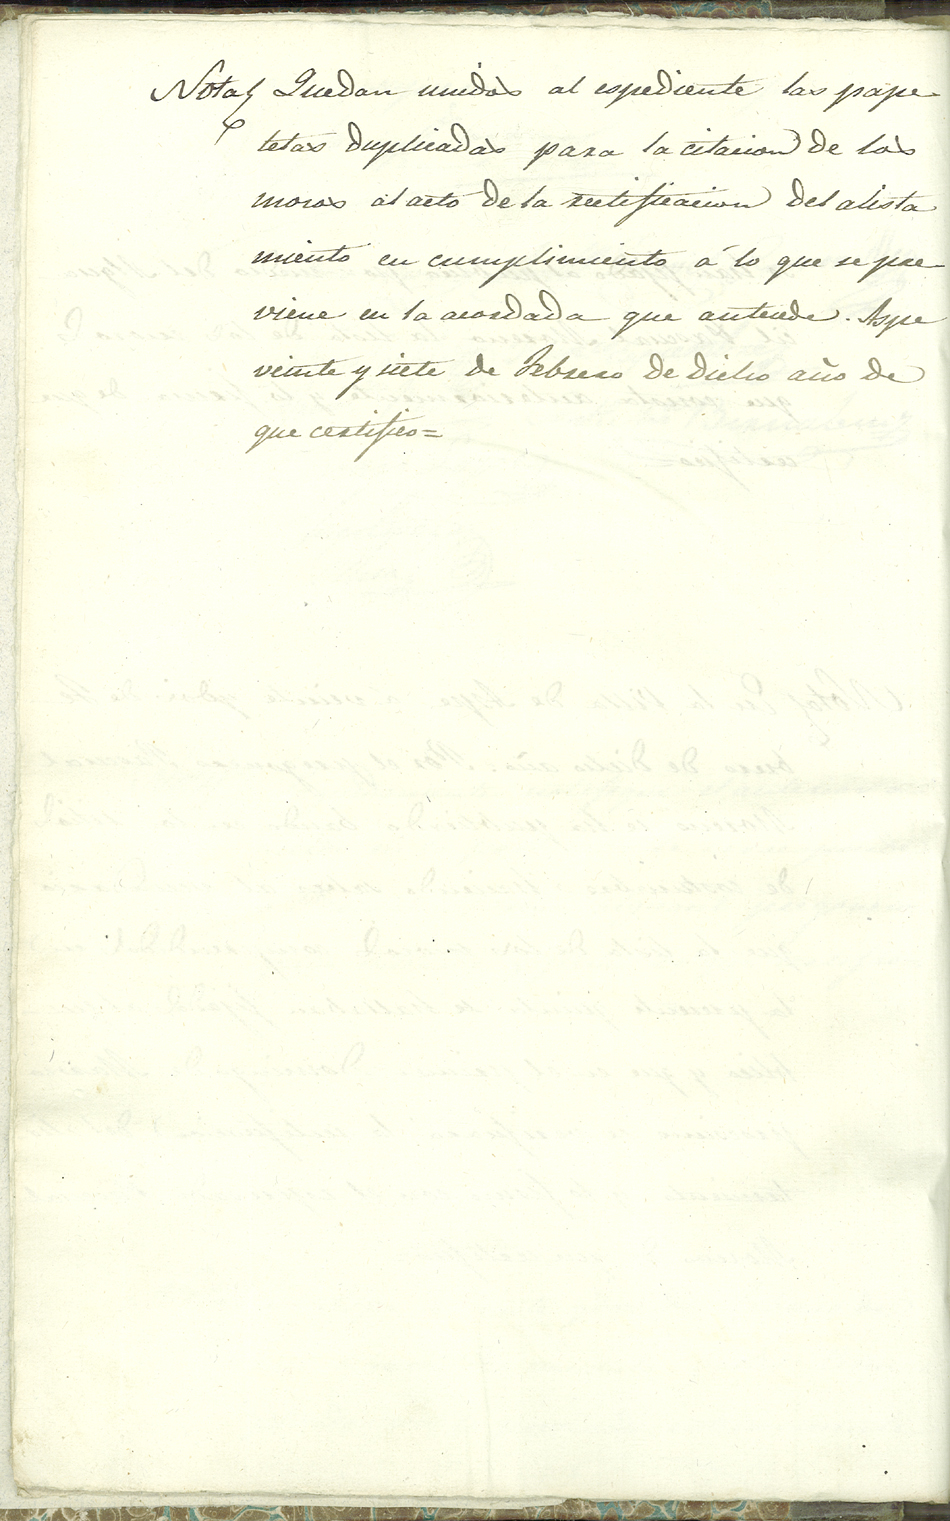 Nota} Quedan unidas al espediente las pape-
letas duplicadas para la citacion de los
mozos al acto de la rectificacion del alista
miento en cumplimiento á lo que se pre-
viene en la acordada que antecede. Aspe
veinte y siete de Febrero de dicho año de
que certifico=